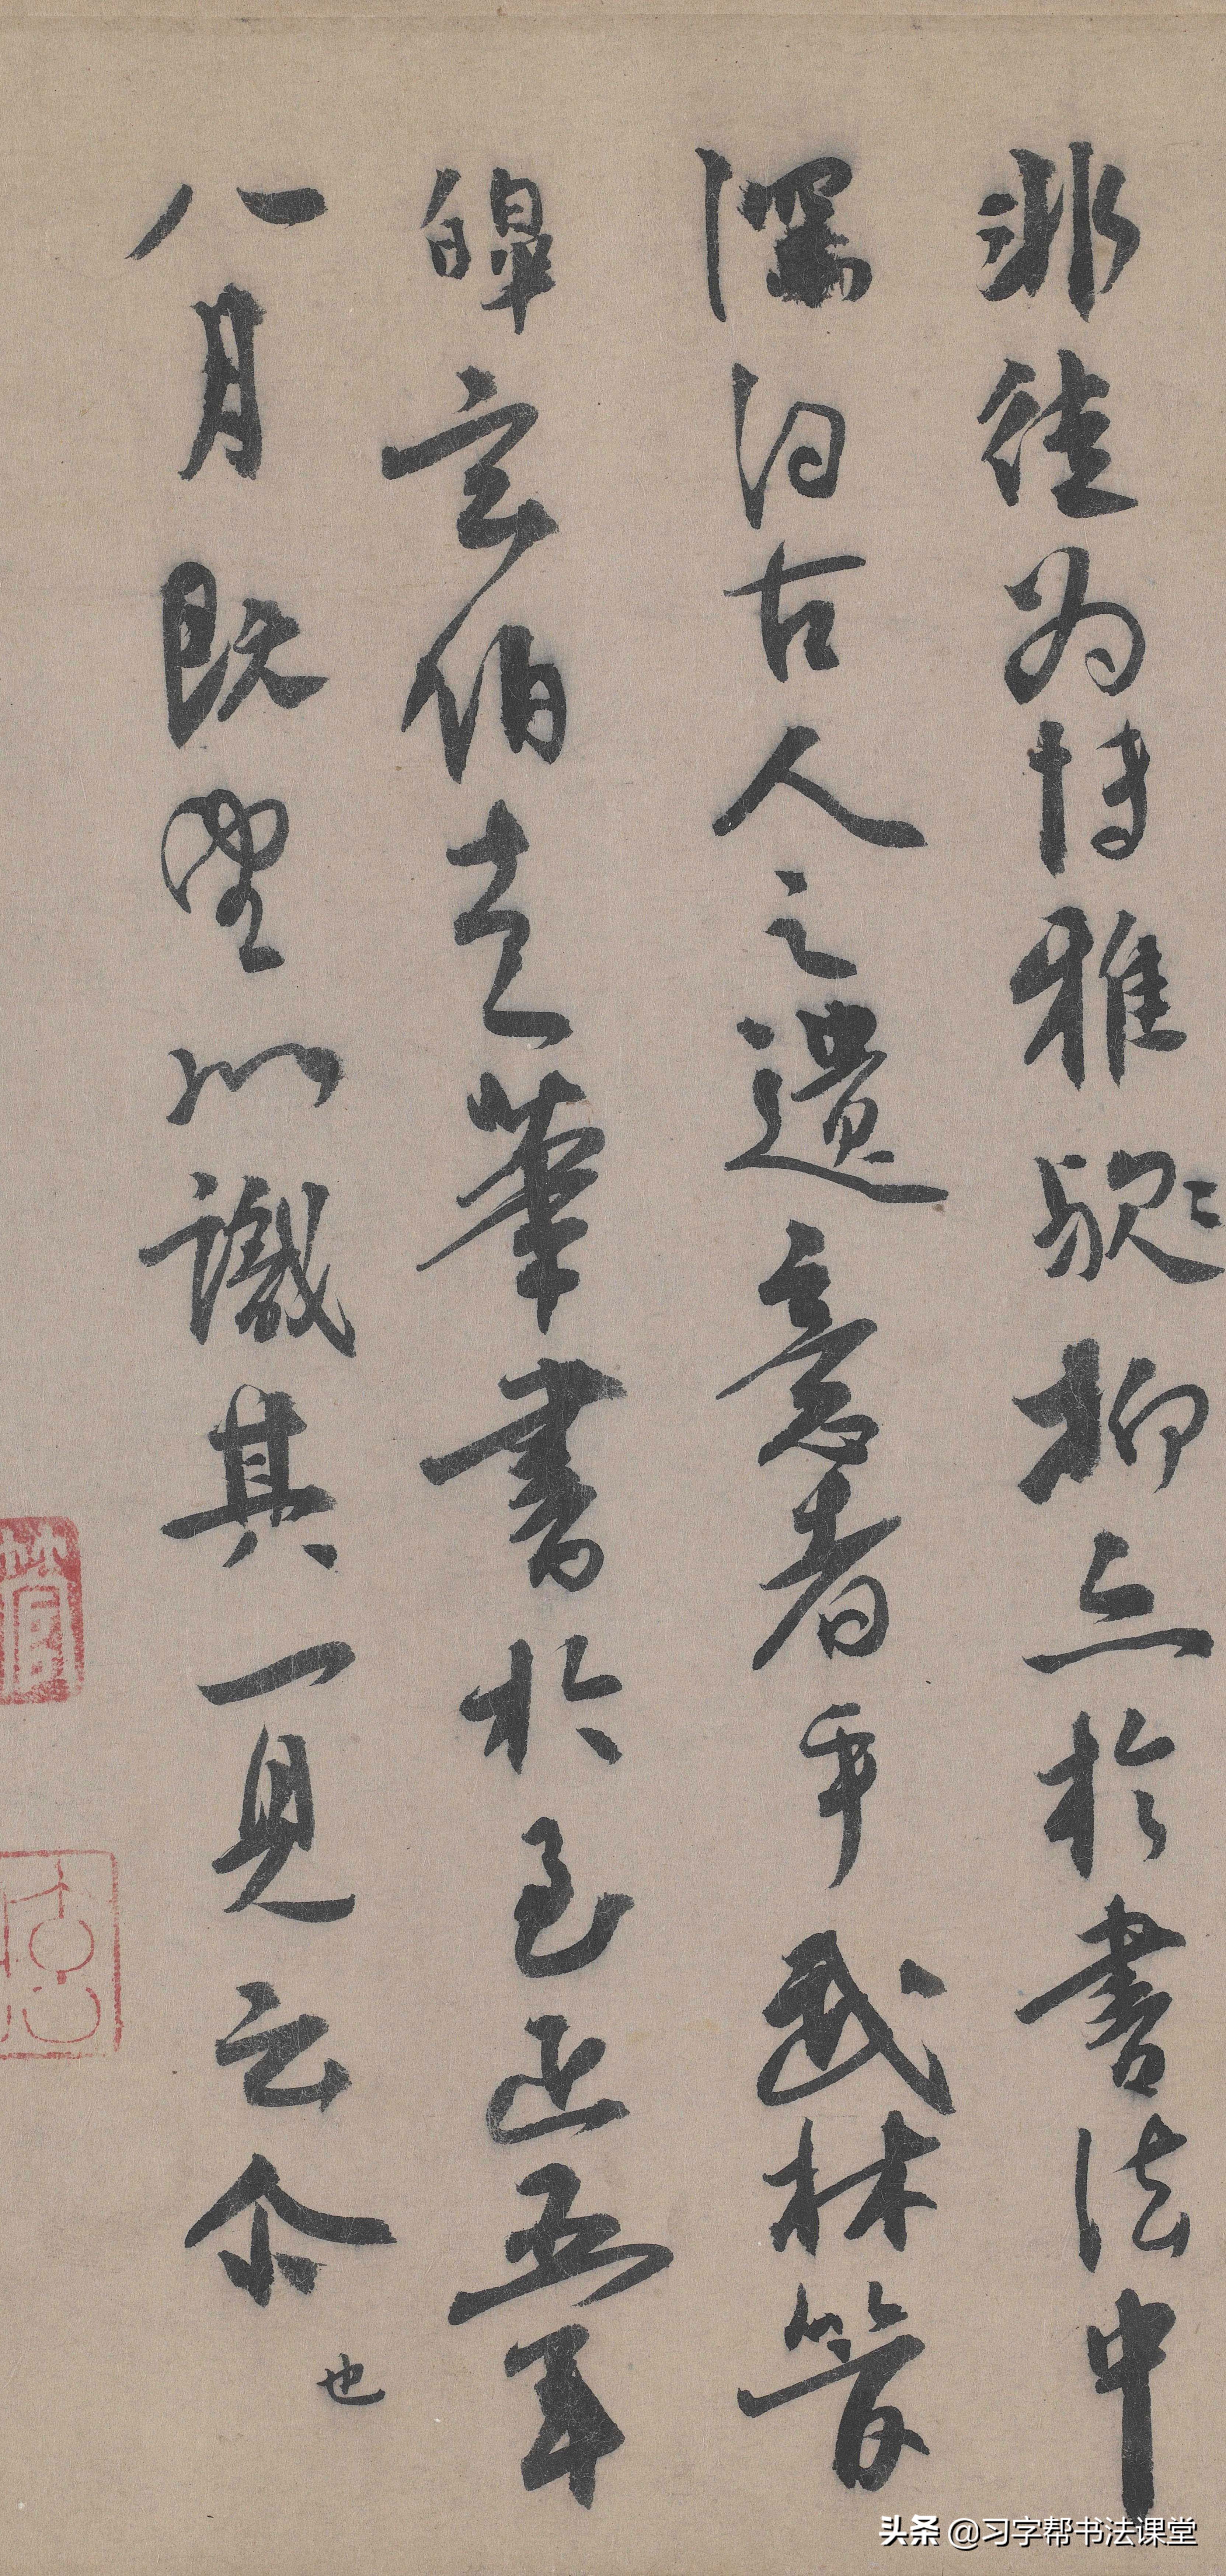 非徒為博雅歟抑亦於書法中
深得古人之遺意者乎武林管
皞玄伯走筆書於至正五年
八月既望以識其一見云尒
也
头条 @习字帮书法课堂